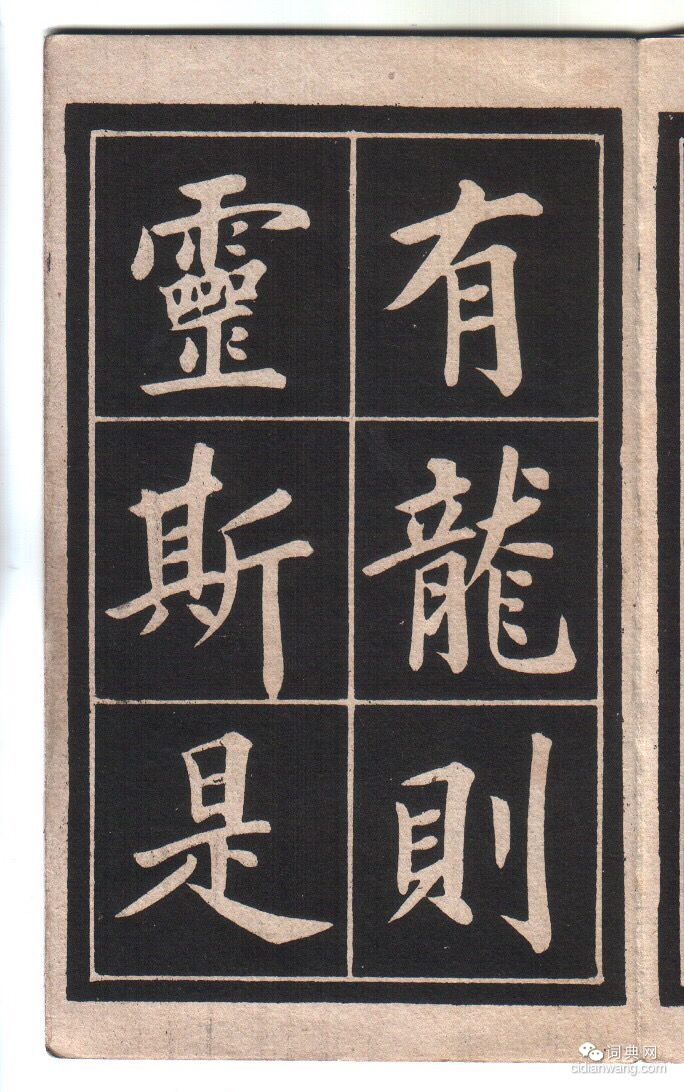 有龍則
靈斯是
词典网
cidianwang.com